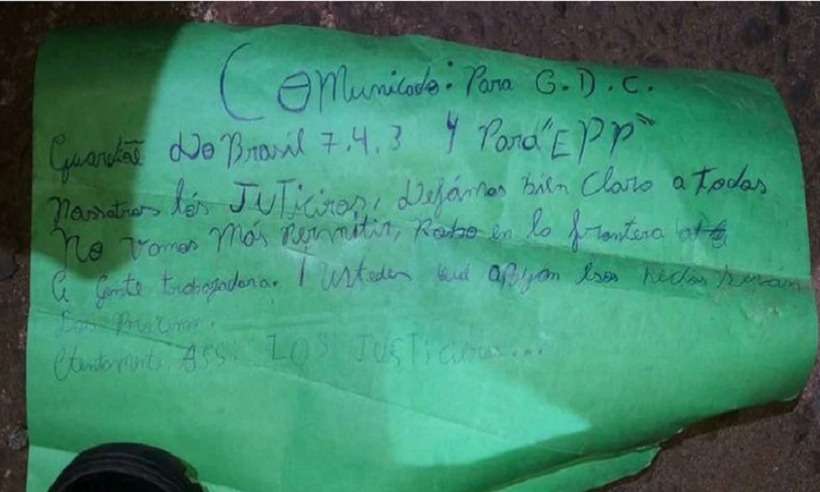 Comunicado: Para G.D.C.
Guardiõe do Brasil 7.4.3 y Para "EPP"
nosotros lós JUTiciros, Dejámos bien Claro a todas
No vamos más permitir, Robo en la frontera
a gente trabajadora. ustedes apoyan esos
Los
Atentamente ASS: LOS JUSTicieros...